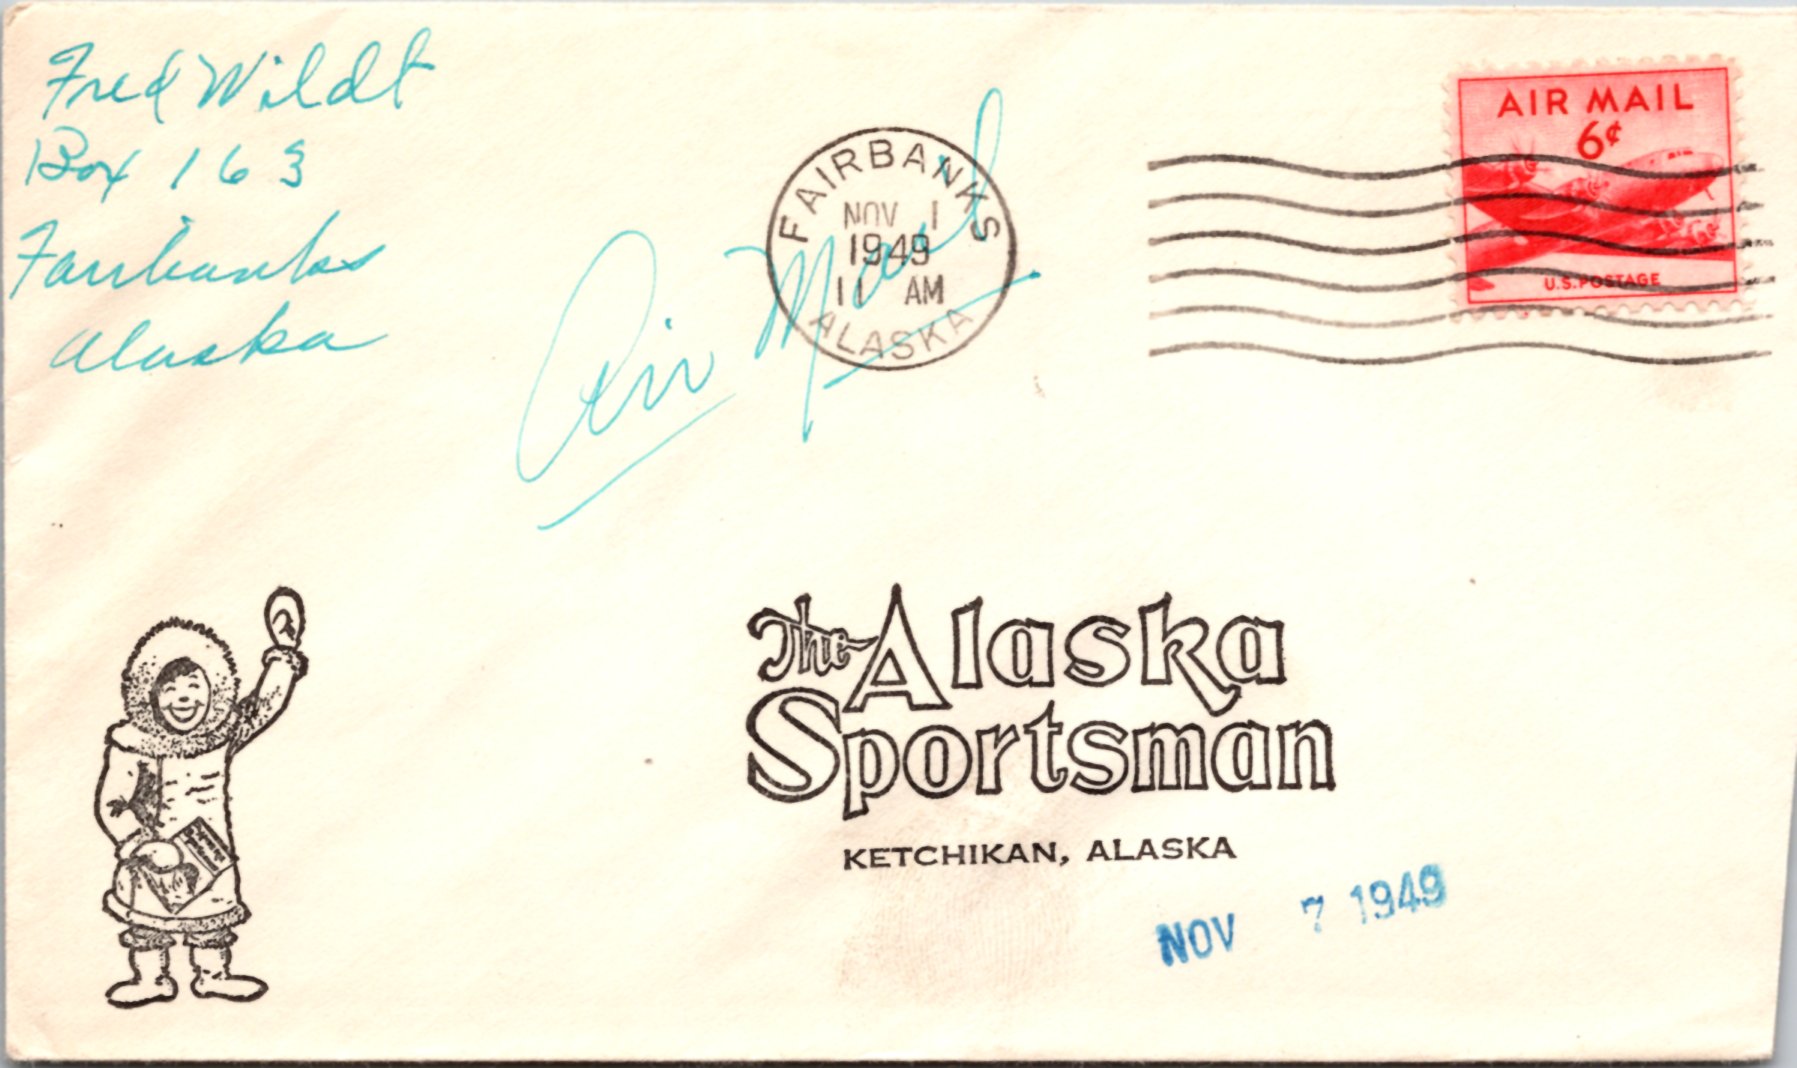 Fred Wildt
Box 163
Fairbanks
Alaska
Air Mail
FAIRBANKS
NOV 1
1949
11 AM
ALASKA
AIR MAIL
6¢
U.S. POSTAGE
The Alaska
Sportsman
KETCHIKAN, ALASKA
NOV 7 1949